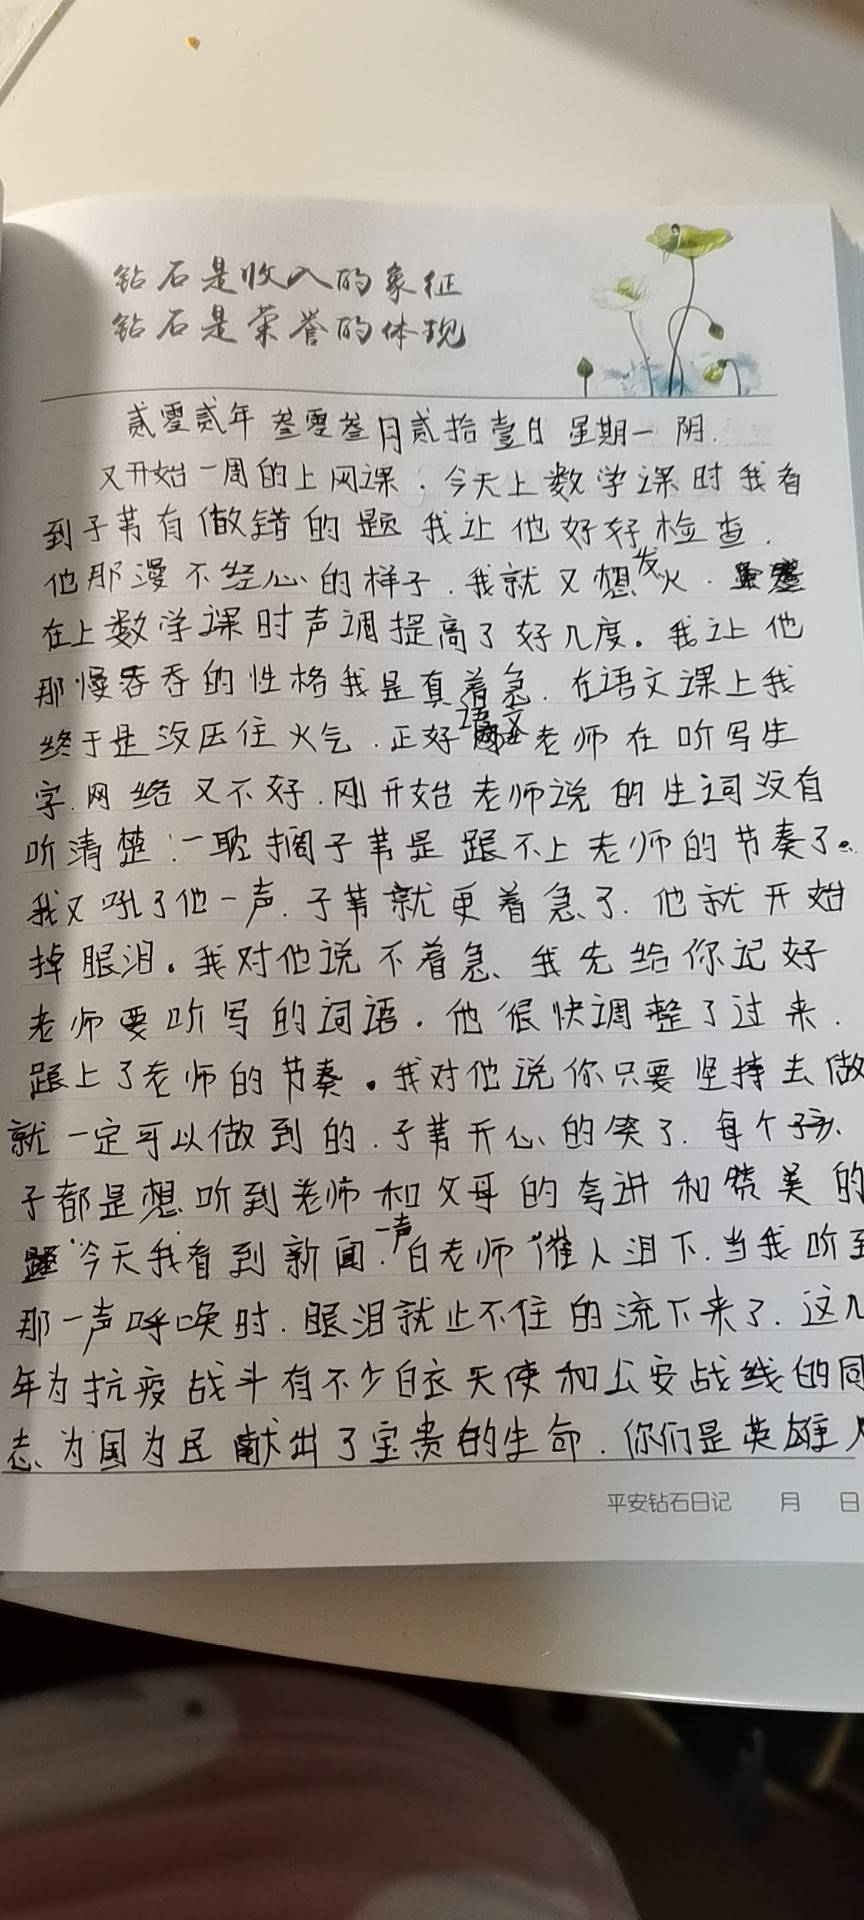 钻石是收入的象征
钻石是荣誉的体现
贰零贰年 叁零叁月贰拾壹日 星期一 阴.
又开始一周的上网课. 今天上数学课时我看
到子苇有做错的题 我让他好好检查.
他那漫不经心的样子. 我就又想发火.
在上数学课时声调提高了好几度。我让他
那慢吞吞的性格我是真着急. 在语文课上我
终于是没压住火气. 正好语文老师在听写生
字. 网络又不好. 刚开始老师说的生词没有
听清楚. 一耽搁子苇是跟不上老师的节奏了。
我又吼了他一声. 子苇就更着急了. 他就开始
掉眼泪。我对他说不着急、我先给你记好
老师要听写的词语. 他很快调整了过来.
跟上了老师的节奏。我对他说你只要坚持去做
就一定可以做到的. 子苇开心的笑了. 每个孩
子都是想听到老师和父母的夸讲和赞美的
今天我看到新闻. 一声白老师催人泪下. 当我听到
那一声呼唤时. 眼泪就止不住的流下来了. 这几
年为抗疫战斗有不少白衣天使和公安战线的同
志、为国为民献出了宝贵的生命. 你们是英雄人
平安钻石日记 月 日